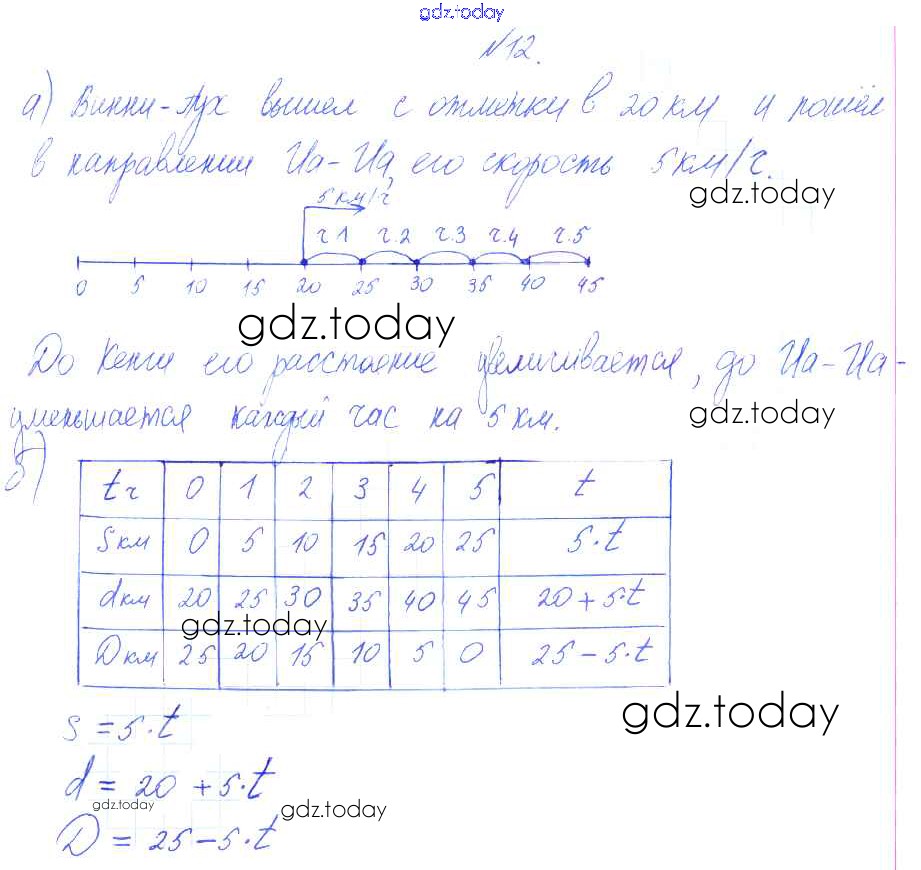 gdz.today
№12.
а) Винни-Пух вышел с отметки в 20 км и пошёл
в направлении Иа-Иа, его скорость 5 км/ч.
gdz.today
5 км/ч
ч.1 ч.2 ч.3 ч.4 ч.5
0 5 10 15 20 25 30 35 40 45
gdz.today
До Кенги его расстояние увеличивается, до Иа-Иа -
уменьшается каждый час на 5 км.
gdz.today
б)
t ч 0 1 2 3 4 5 t
s км 0 5 10 15 20 25 5·t
d км 20 25 30 35 40 45 20+5·t
gdz.today
D км 25 20 15 10 5 0 25-5·t
gdz.today
s = 5·t
d = 20 + 5·t
gdz.today
gdz.today
D = 25-5·t